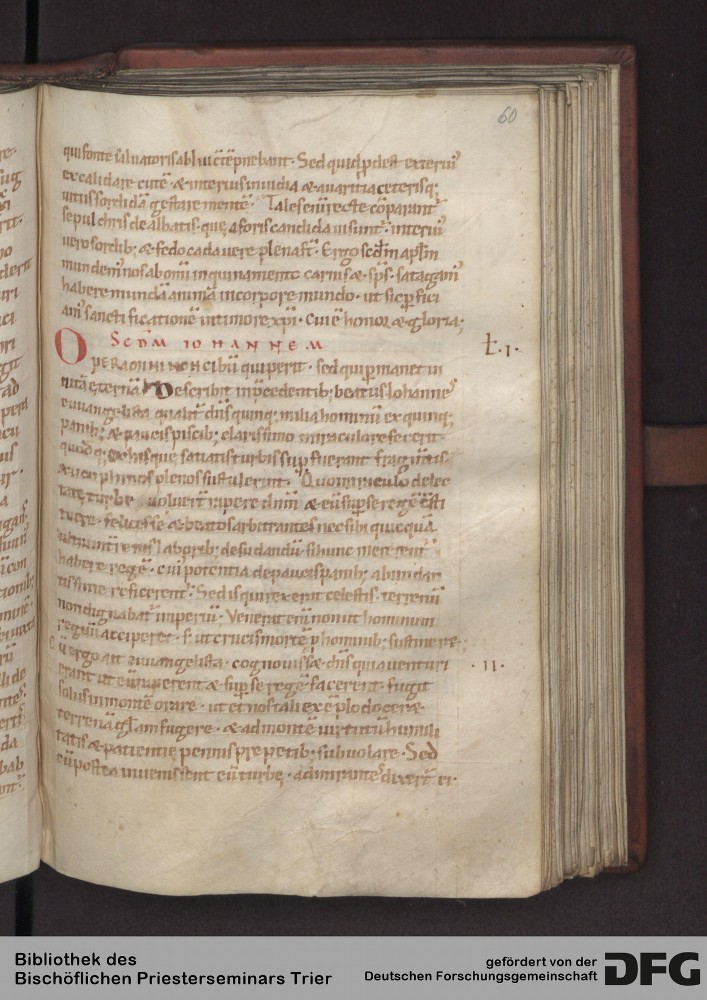 60
qui fonte saluatoris abluti tepnebant. Sed quid pdest exteriꝰ
excalidare cutē & interius inuidia & auaritia ceterisq;
uitiis sordidā gestare mentē. Tales enī recte cōparant᷑
sepulchris dealbatis. que aforis candida uisunt᷑. interiꝰ
uero sordib; & fedo cadauere plena st̄. Ergo scdm aplm
mundem nos ab omī inquinamento carnis & sp̄s. satagamꝰ
habere mundā animā in corpore mundo. ut sic pfici
amꝰ sanctificationē in timore xp̄i. cui ē honor & gloria;
SCDM IOHANNEM
t̄.I.
OPERAMINI NON cibū qui perit. sed qui pmanet in
uitā eternā. Describit in p̄cedentib; beatus Iohannes
euuangelista qualit᷑ dn̄s quinq; milia hominū ex quinq;
panib; & paucis piscib; clarissimo miraculo refecerit.
quodq; ex hisque satiatis turbis sup fuerant fragmtis.
xii cophinos plenos sustulerint. Quo miraculo delec
tate turbe uoluerunt rapere dn̄m & eū sup se regē c̄sti
tuere. felices se & beatos arbitrantes nec sibi quicquā
ulterius in reris laborib; desudandū. si hunc mererent᷑
habere regē. cuiꝰ potentia de paucis panib; abundan
tissime reficerent᷑. Sed is qui rexerit celestis. terrenū
non dignabat᷑ imperiū. Venerat enī non ut hominum
regnū acciperet. s; ut crucis mortē p hominib; sustineret;
Cū ergo ait euuangelista. cognouisset dn̄s quia uenturi
.II.
erant ut eū raperent & sup se regē facerent. fugit
solus in montē orare. ut et nos tali exēplo doceret
terrenā gl̄am fugere. & ad montē uirtutū humili
tatis & patientie pennis prepetib; subuolare. Sed
cū postea inuenissent eū turbe. admirantes dixert̄ ei.
Bibliothek des
Bischöflichen Priesterseminars Trier
gefördert von der
Deutschen Forschungsgemeinschaft
DFG